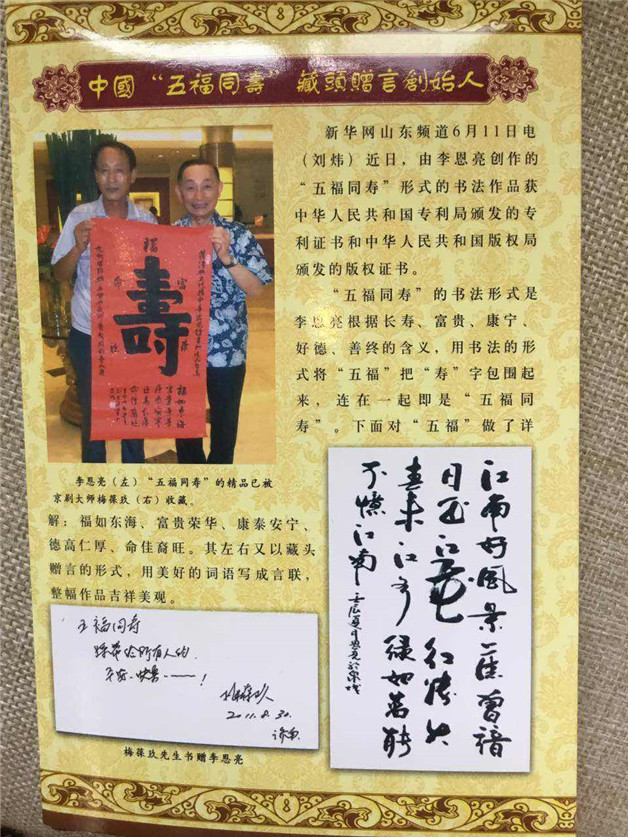 中國“五福同壽”藏頭贈言創始人
新华网山东频道6月11日电
（刘炜）近日，由李恩亮创作的
“五福同寿”形式的书法作品获
中华人民共和国专利局颁发的专
利证书和中华人民共和国版权局
颁发的版权证书。
“五福同寿”的书法形式是
李恩亮根据长寿、富贵、康宁、
好德、善终的含义，用书法的形
式将“五福”把“寿”字包围起
来，连在一起即是“五福同
寿”。下面对“五福”做了详
福
富
壽
命
德
福如东海
李恩亮（左）“五福同寿”的精品已被
京剧大师梅葆玖（右）收藏。
解：福如东海、富贵荣华、康泰安宁、
德高仁厚、命佳裔旺。其左右又以藏头
赠言的形式，用美好的词语写成言联，
整幅作品吉祥美观。
江南好风景旧曾谙
日出江花红胜火
春来江水绿如蓝能
不憶江南
五福同寿
给所有人的
平安、快乐——！
梅葆玖
2011.8.30.
济南
梅葆玖先生书赠李恩亮
8